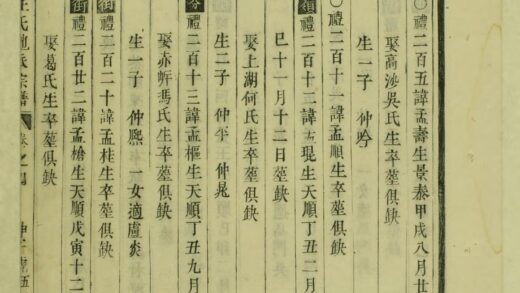 〇禮二百五諱孟壽生景泰甲戌八月廿
娶高沙吳氏生卒塟俱缺
生一子 仲吟
〇禮二百十一諱孟順生卒塟俱缺
嶺禮二百十二諱孟琨生天順丁丑二月
巳十一月十二日塟缺
娶上湖何氏生卒塟俱缺
生二子 仲平 仲晃
禮二百十三諱孟樞生天順丁丑九月
娶赤岸馮氏生卒塟俱缺
生一子 仲熙 一女適盧炎
街禮二百二十諱孟桂生卒塟俱缺
街禮二百廿二諱孟槍生天順戊寅十二
娶葛氏生卒塟俱缺
氏 派宗譜 卷之四